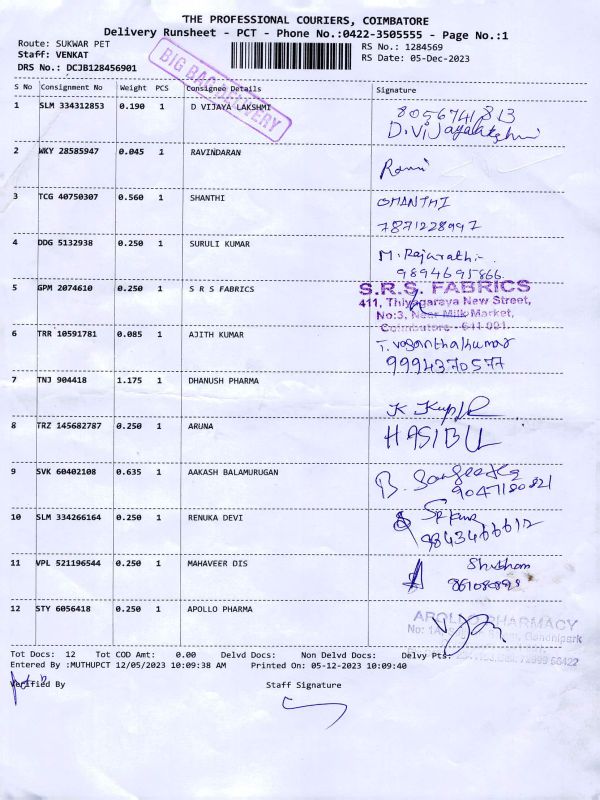 THE PROFESSIONAL COURIERS, COIMBATORE
Delivery Runsheet - PCT - Phone No.:0422-3505555 - Page No.:1
Route: SUKWAR PET RS No.: 1284569
Staff: VENKAT RS Date: 05-Dec-2023
DRS No.: DCJB128456901
BIG BAG DELIVERY
S No Consignment No Weight PCS Consignee Details Signature
1 SLM 334312853 0.190 1 D VIJAYA LAKSHMI 8056741813
D.Vijayalakshmi
2 WKY 28585947 0.045 1 RAVINDARAN
3 TCG 40750307 0.560 1 SHANTHI SHANTHI
7871228997
4 DDG 5132938 0.250 1 SURULI KUMAR M. Rajarathi
9894695866
5 GPM 2074610 0.250 1 S R S FABRICS S.R.S. FABRICS
411, Thiyagaraya New Street,
No:3, Near Milk Market,
Coimbatore - 641 001.
6 TRR 10591781 0.085 1 AJITH KUMAR T. vasanthakumar
9994370577
7 TNJ 904418 1.175 1 DHANUSH PHARMA
8 TRZ 145682787 0.250 1 ARUNA HASIBUL
9 SVK 60402108 0.635 1 AAKASH BALAMURUGAN B. Sangeetha
10 SLM 334266164 0.250 1 RENUKA DEVI
9843466612
11 VPL 521196544 0.250 1 MAHAVEER DIS Shubham
12 STY 6056418 0.250 1 APOLLO PHARMA APOLLO PHARMACY
Tot Docs: 12 Tot COD Amt: 0.00 Delvd Docs: Non Delvd Docs: Delvy Pts:
Entered By :MUTHUPCT 12/05/2023 10:09:38 AM Printed On: 05-12-2023 10:09:40
Verified By Staff Signature